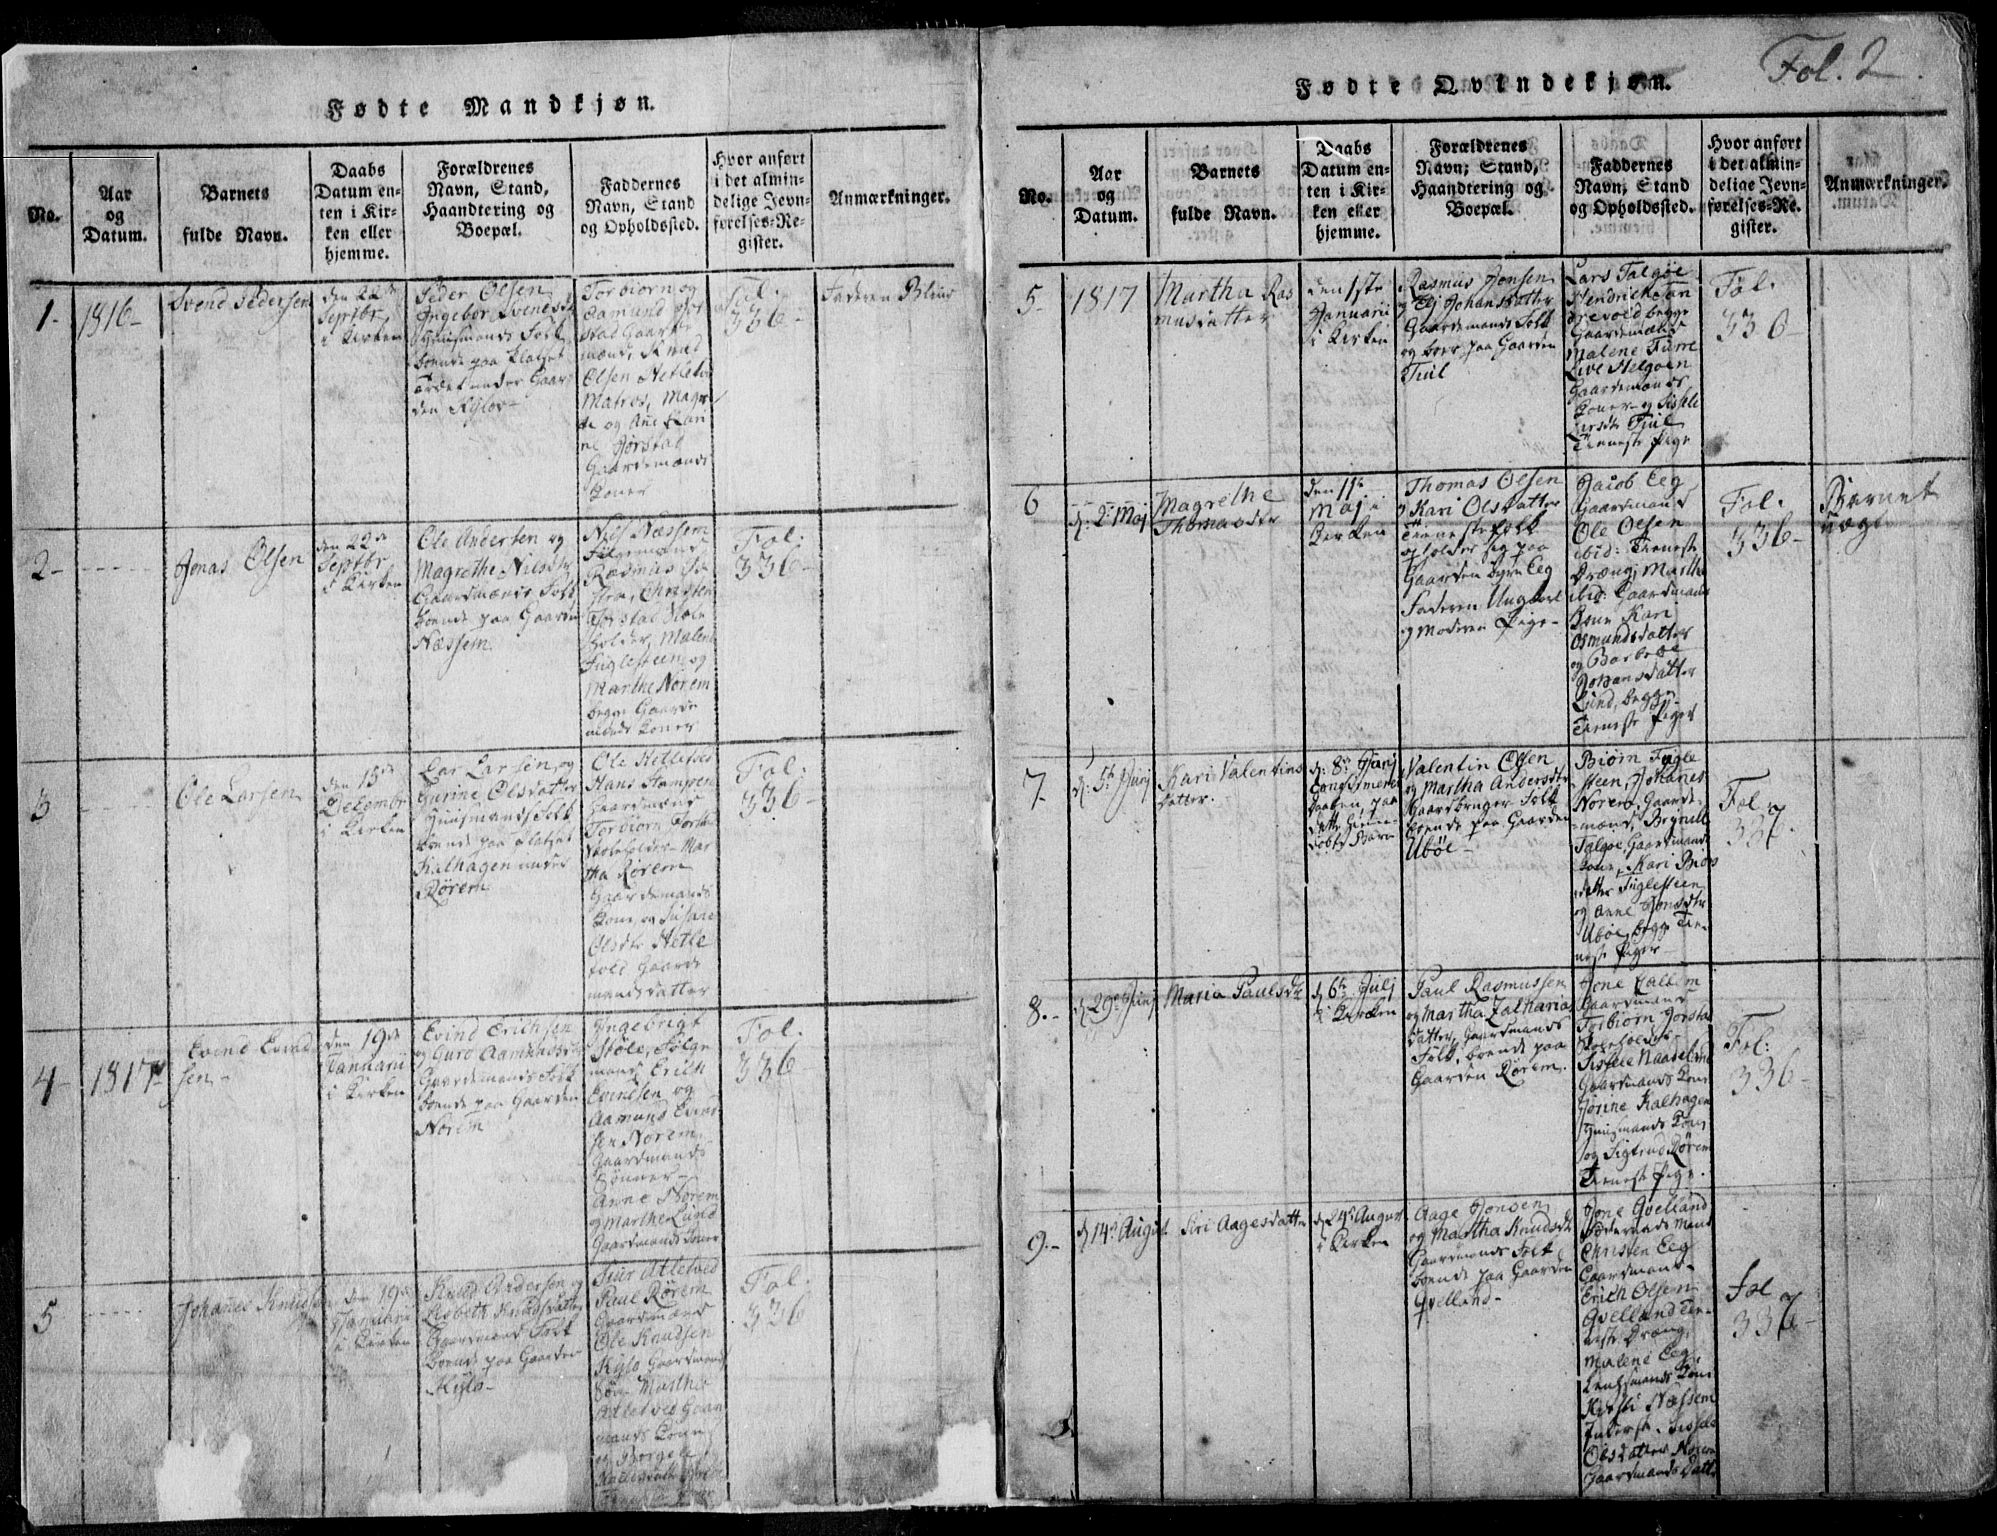 Fødte Mandkjøn.
No.
Aar
og
Datum.
Barnets
fulde Navn.
Daabs
Datum en-
ten i Kir-
ken eller
hjemme.
Forældrenes
Navn, Stand,
Haandtering og
Boepæl.
Faddernes
Navn, Stand
og Opholdssted.
Hvor anført
i det almin-
delige Jevn-
førelses-Re-
gister.
Anmærkninger.
1-
1816-
Svend Pedersen
den 22de
Septbr
i Kirken
Peder Olsen
Ingebor Svendsdr
Huusmands Folk
boende paa Pladset
under Gaar
den Kylov-
Torbiorn og
Aamund Jør
stad Gaarde
mænd, Knud
Olsen Hetletvd
Matros, Magre
te og Ane Kari
ne Jørstad
Gaardemænds
Koner
Fol.
336-
Faderen
2-
Jonas Olsen
den 22de
Septbr
i Kirken
Ole Andersen og
Magrethe Nilsdtr
Gaardmænds Folk
boende paa Gaarden
Næssem
Nils Næssem
Rasmus
Christen
Jørstad Skole
holder, Malene
Fuglesteen og
Marthe Norem
begge Gaarde
mænds Koner
Fol.
336-
3
Ole Larsen
den 15de
Decembr
i Kirken
Lar Larsen og
Gurine Olsdatter
Huusmands Folk
boende paa Pladset
Kalhagen under
Rørem
Ole Hetletved
Hans
Gaardmænd
Torbiorn Jørsta
Skoleholder- Mar
tha Rørem
Gaardemands
Kone, og Susane
Olsdtr Hetle
tved Gaarde
mandsdatter
Fol.
336-
4-
1817-
Evind Evind
sen-
den 19de
Januarii
i Kirken
Evind Erichsen
og Guro Aamundsdtr
Gaardemands Folk
boende paa Gaarden
Norem
Ingebrigt
Støle, Følge
mand Erich
Evindsen og
Aamund Evind
sen Norem
Gaardmands
Sønner-
Anne Norem
og Marthe Lund
Gaardmands Koner
Fol.
336-
5
Johanes Knudsen
den 19de
Januarii
i Kirken
Knud Andersen og
Lisbeth Knudsdatter
Gaardmands Folk
boende paa Gaarden
Kylo-
Siur Atletved
Paul Rørem
Gaardmænd
Ole Knudsen
Kylo Gaardmands
Søn Marthe
Atletved Gaar
mands Kone
Fol.
336
Fol. 2.
Fødte Qvindekjøn.
No.
Aar
og
Datum.
Barnets
fulde Navn.
Daabs
Datum en-
ten i Kir-
ken eller
hjemme.
Forældrenes
Navn, Stand,
Haandtering og
Boepæl.
Faddernes
Navn, Stand
og Opholdssted.
Hvor anført
i det almin-
delige Jevn-
førelses-Re-
gister.
Anmærkninger.
5-
1817
Martha Ras
musdatter
den 1ste
Januarii
i Kirken
Rasmus Jonsen
og Johansdatter
Gaardemands Folk
og boer paa Gaarden
Tuil
Lars Talgøe
Hendrich
begge
Gaardemænd
Malene Furre
Live Helgøen
Gaardemænds
Koner- og Sissele
Larsdtr Tuil
Tieneste Pige
Fol.
336-
6
d: 2de Maj
Magrethe
Thomasdtr
den 11te
Maj i
Kirken
Thomas Olsen
og Kari Olsdatter
Tieneste folk
opholder sig paa
Gaarden Eeg
Faderen Ungkarl
og Moderen Pige-
Jacob Eeg
Gaardmand
Ole Olsen
ibid: Tieneste
Dræng, Marthe
ibid: Gaardmands
Kone Kari
Osmundsdatter
og Barbroe
Johansdatter
Lund, begge
Tieneste Piger
Fol.
336-
Barnet
7-
d: 5te Junj
Kari Valentins
datter.
d: 8de Junj
Valentin Olsen
og Martha Andersdtr
Gaardbruger Folk
boende paa Gaarden
Ubøe-
Biørn Fugle
steen, Johanes
Norem, Gaarde-
mænd, Brynild
Talgøe, Gaardmands
Kone, Kari Biørs
datter Fuglesteen
og Anne Jonsdtr
Ubøe, begge Tie-
neste Piger
Fol
337.
8.-
d 29de Junj
Maria Paulsdtr
d 6te Julj
i Kirken
Paul Rasmussen
og Martha Zacharias
datter, Gaardmands
Folk, boende paa
Gaarden Rørem.
Jone
Gaardmand
Torbiorn Jørsta
Skoleholder
Sissele Naadeland
Gaardmands Kone
Jorine Kalhagen
Huusmands Kone
og Sigtrud Rørem
Tieneste Pige.
Fol:
336-
9.-
d 14de August
Siri Aagesdatter
d 24de August
i Kirken
Aage Jonsen
og Martha Knudsdtr
Gaardmands Folk
boende paa Gaarden
Qvelland-
Jone Qvelland
Christen Eeg
Gaardmand-
Erich Olsen
Qvelland Tie-
neste Dræng,
Malene Eeg
Lensmands Kone
Kirsti Næssem
Sissele
Olsdatter Norem
Gaardmands Datt.
Fol
337-